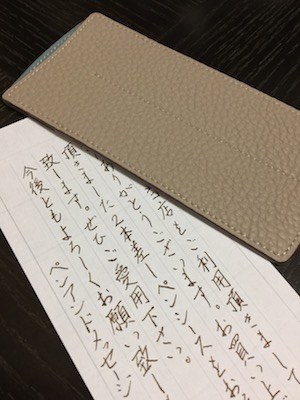 店をご利用頂きまして
りがとうございます。お買い上
2本差しペンシースをお
致します。ぜひご愛用下さい。
今後ともよろしくお願い致し
ペンアンドメッセージ